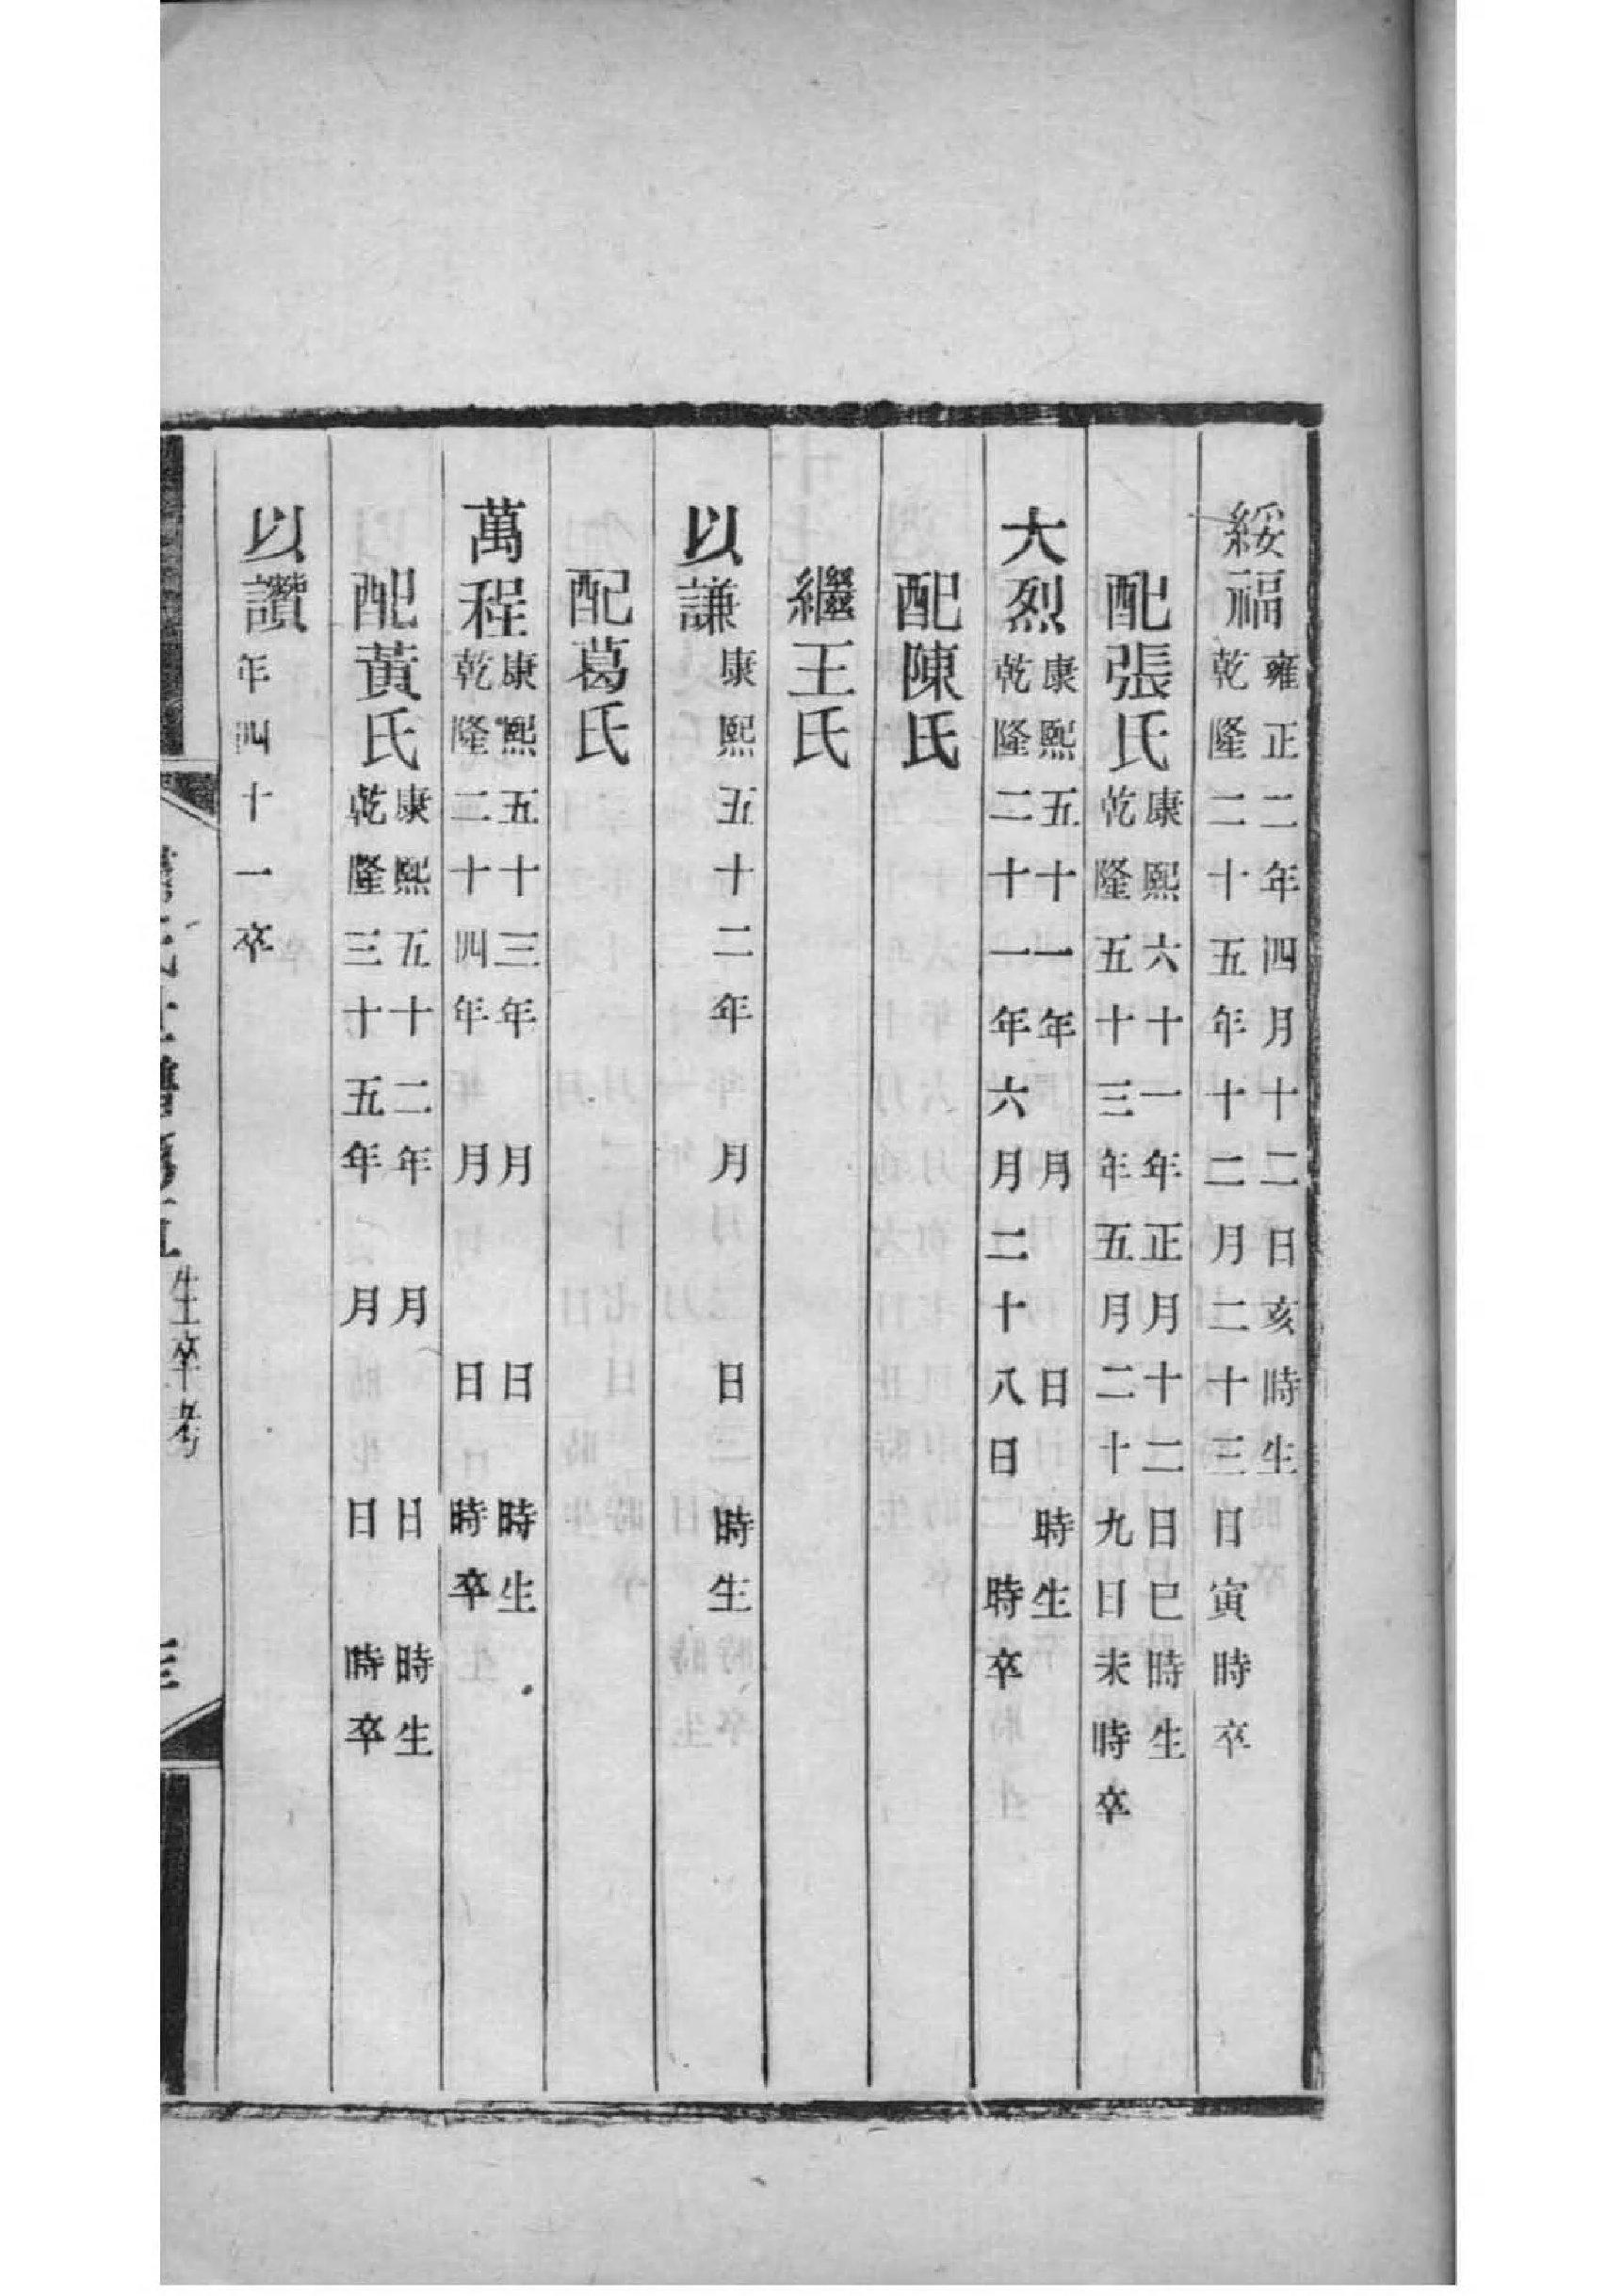 綏福
雍正二年四月十二日亥時生
乾隆二十五年十二月二十三日寅時卒
配張氏
康熙六十一年正月十二日巳時生
乾隆五十三年五月二十九日未時卒
大烈
康熙五十一年 月 日 時生
乾隆二十一年六月二十八日 時卒
配陳氏
繼王氏
以謙
康熙五十二年 月 日 時生
配葛氏
萬程
康熙五十三年 月 日 時生
乾隆二十四年 月 日 時卒
配黃氏
康熙五十二年 月 日 時生
乾隆三十五年 月 日 時卒
以讚
年四十一卒
生卒考